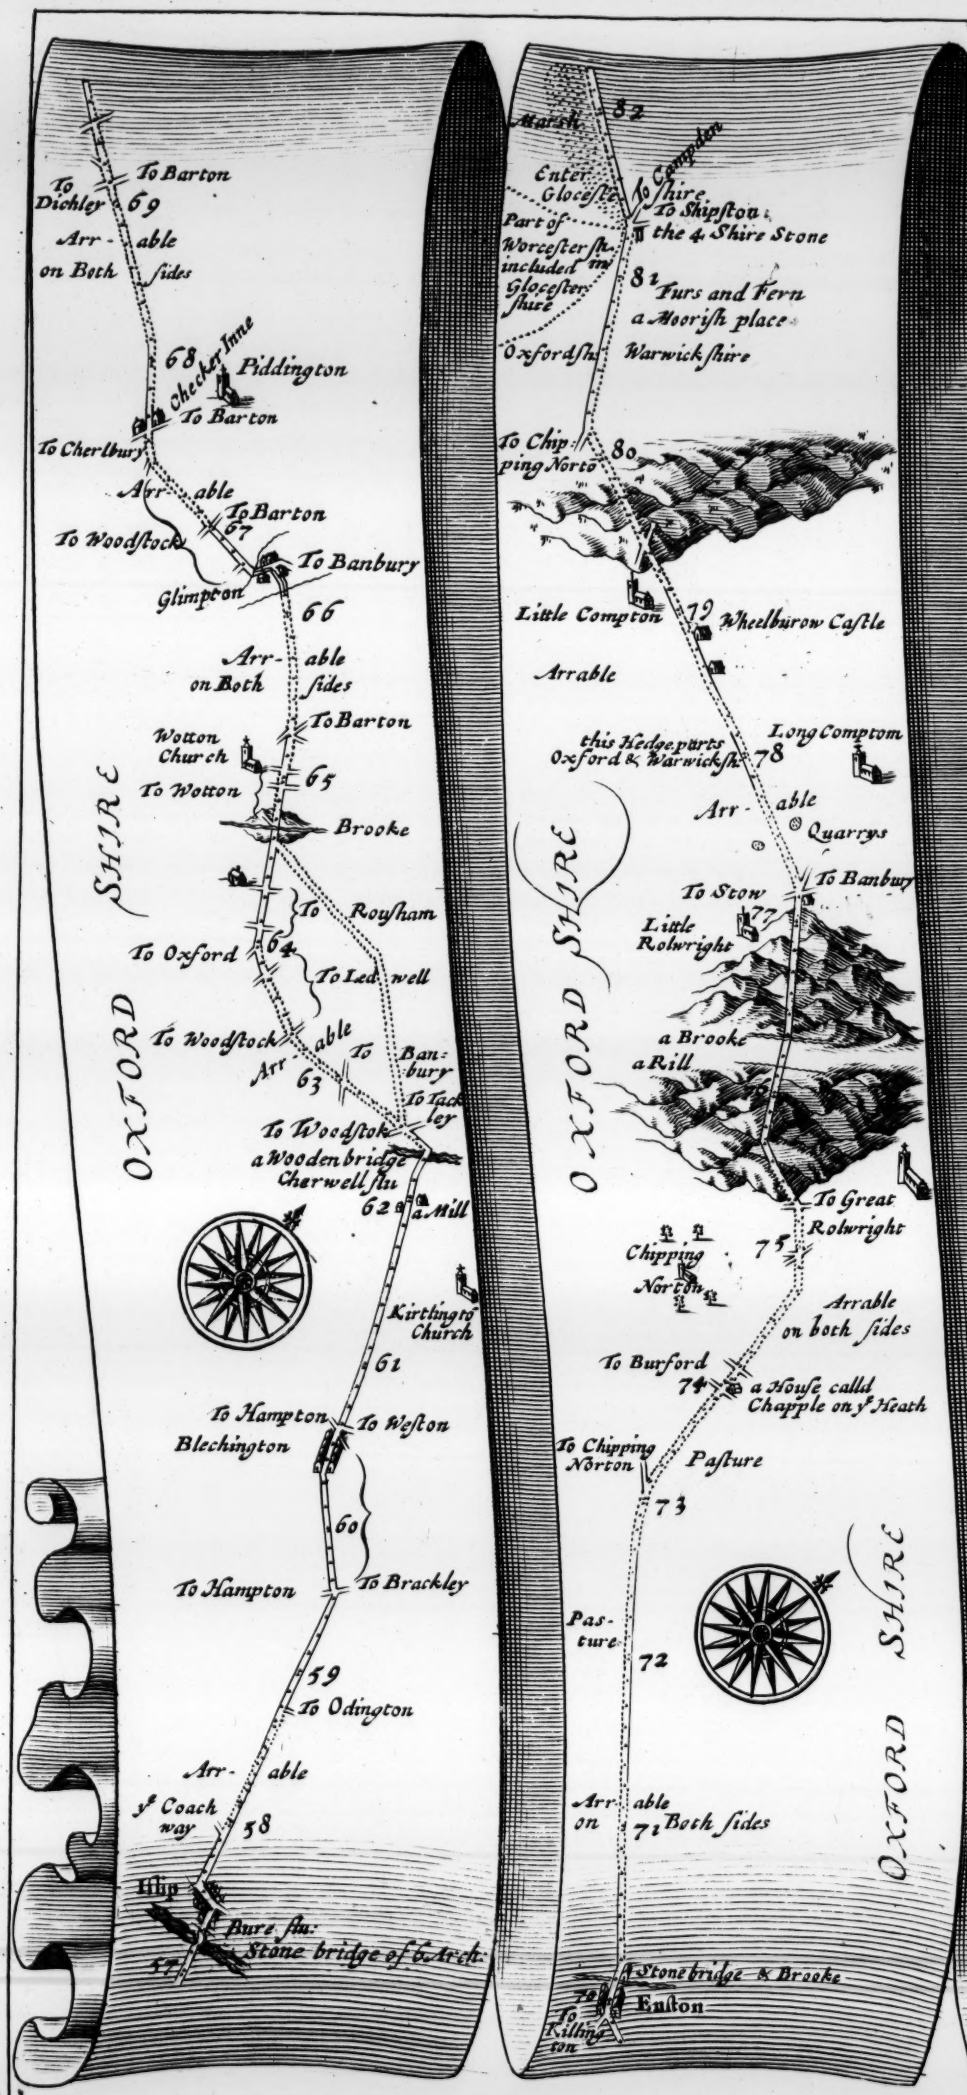 To Barton
To
Dichley
69
Arr- able
on Both sides
68
Checker Inne
Piddington
To Barton
To Cherlbury
Arr- able
To Barton
67
To Woodstock
To Banbury
Glimpton
66
Arr- able
on Both sides
To Barton
Wotton
Church
65
To Wotton
Brooke
To Rousham
64
To Oxford
To Led well
To Woodstock
Arr- able
To Ban=
bury
63
To Tack
ley
To Woodstok
a Wooden bridge
Charwell flu
62
a Mill
Kirtlingtō
Church
61
To Hampton
To Weston
Blechington
60
To Hampton
To Brackley
59
To Odington
Arr- able
yᵉ Coach
way
58
Islip
Bure flu:
Stone bridge of 6 Arch:
57
OXFORD SHIRE
82
Marsh
To Campden
Enter
Glocester shire
To Shipston
the 4 Shire Stone
Part of
Worcester sh.
included in
Glocester
shire
81
Furs and Fern
a Moorish place
Oxfordsh:
Warwick shire
To Chip=
ping Norto
80
Little Compton
79
Wheelburow Castle
Arrable
this Hedge parts
Oxford & Warwicksh:
78
Long Compton
Arr- able
Quarrys
To Banbury
To Stow
77
Little
Rolwright
a Brooke
a Rill
76
To Great
Rolwright
75
Chipping
Norton
Arrable
on both sides
To Burford
74
a House calld
Chapple on yᵉ Heath
To Chipping
Norton
Pasture
73
Pas-
ture
72
Arr- able
on Both sides
71
Stone bridge & Brooke
70
Enston
To
Killing
ton
OXFORD SHIRE
OXFORD SHIRE